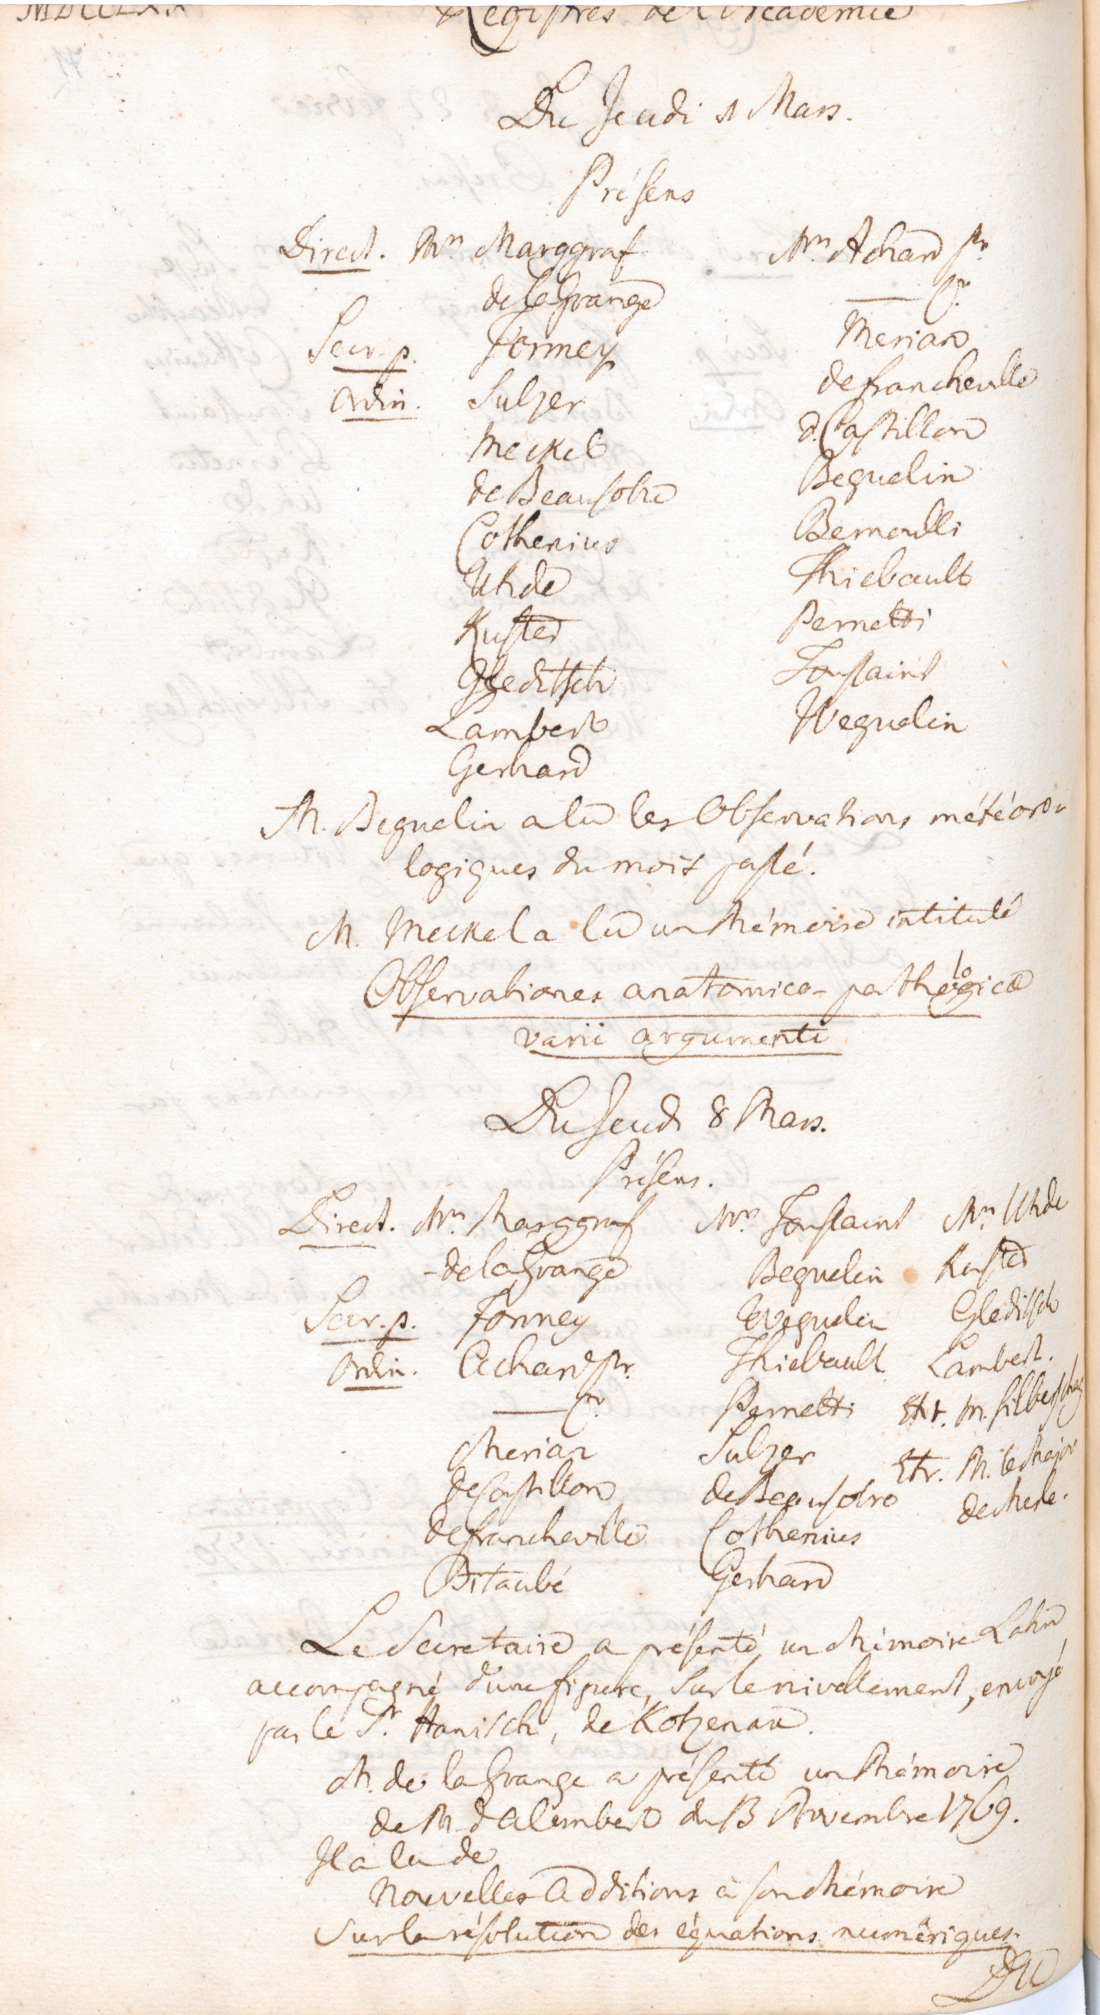 MDCCLXX
Registres de l'Academie
Du Jeudi 1 Mars.
Présens
Direct. Mrs Marggraf
de la Grange
Secr. p. Formey
Ordin. Sulzer
Meckel
de Beausobre
Cothenius
Uhde
Kuster
Gleditsch
Lambert
Gerhard
Mrs. Achard Pr.
—— Cr.
Merian
de francheville
d. Castillon
Beguelin
Bernoulli
Thiebault
Pernetti
Toussaint
Weguelin
M. Beguelin a lu les Observations météoro-
logiques du mois passé.
M. Meckel a lu un Mémoire intitulé
Observationes anatomico-pathologicae
varii argumenti
Du Jeudi 8 Mars.
Présens.
Direct. Mrs Marggraf
de la Grange
Secr. p. Formey
Ordin. Achard Pr.
—— Cr.
Merian
de Castillon
de francheville
Bitaubé
Mrs Toussaint
Beguelin
Weguelin
Thiebault
Pernetti
Sulzer
de Beausobre
Cothenius
Gerhard
Mrs Uhde
Kuster
Gleditsch
Lambert.
Etr. M. Silberschlag
Etr. M. le Major
de
Le Secretaire a présenté un Mémoire Latin
accompagné d'une figure, sur le nivellement, envoyé
par le Sr Hanisch, de Kotzenau.
M. de la Grange a présenté un Mémoire
de M. d'Alembert du 13 Novembre 1769.
Il a lu de
Nouvelles Additions à son Mémoire
sur la résolution des équations numériques.
DU